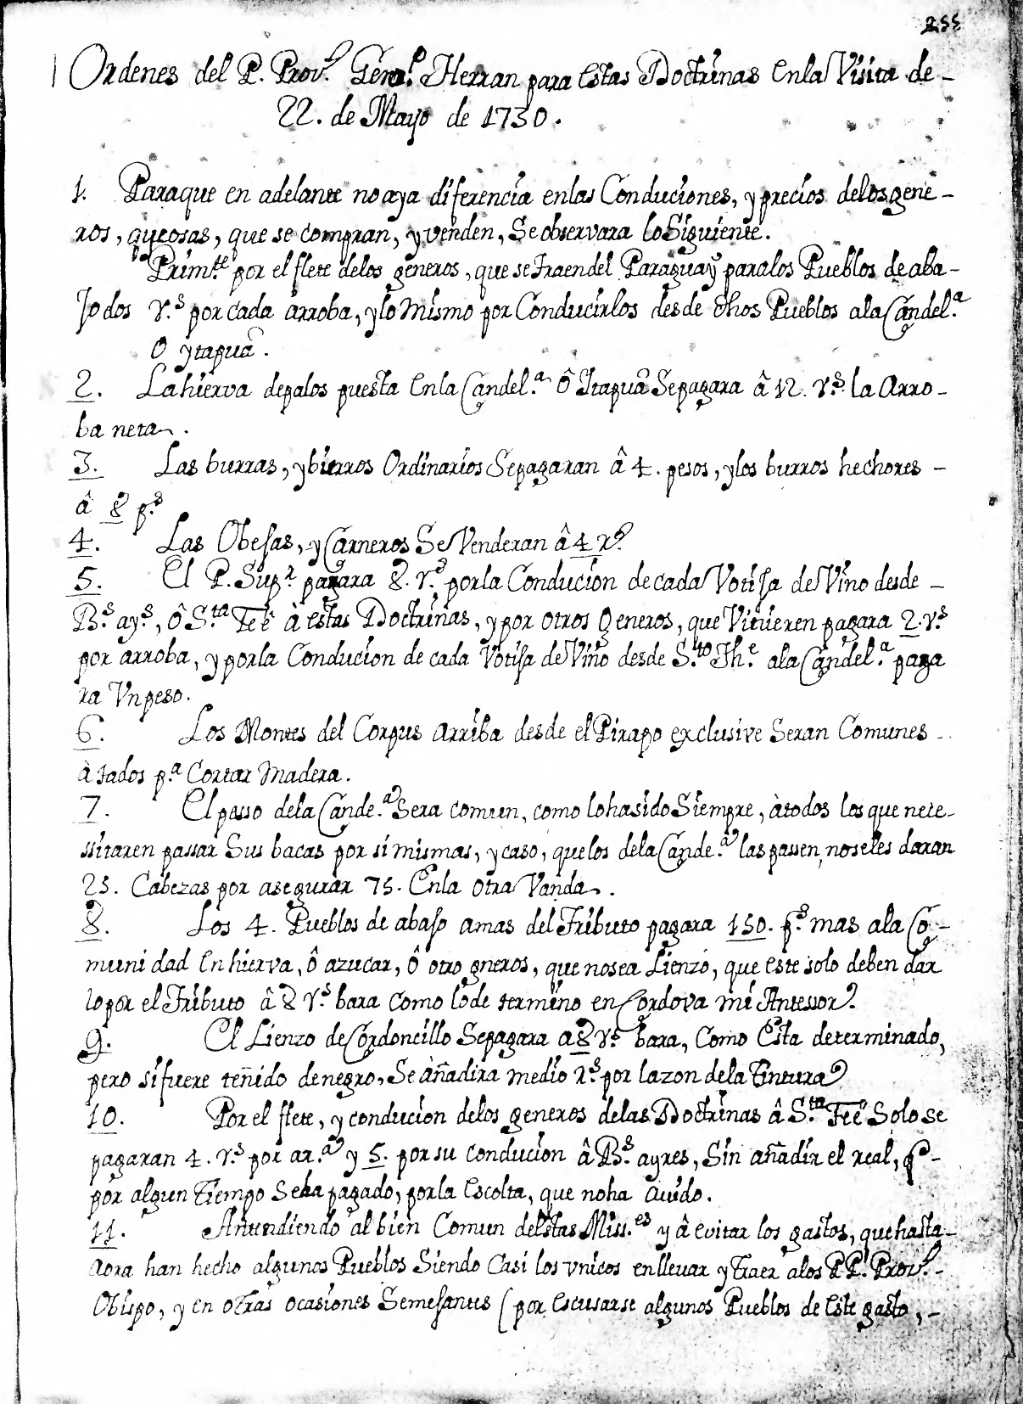 255
Ordenes del P. Prov.l Gerõn.o Herran para Estas Doctrinas En la Visita de -
22. de Mayo de 1730.
1. Paraque en adelante no aya diferencia enlas Conduciones, y precios delos gene -
ros, aycosas, que se compran, y venden, Se observara lo Siguiente.
Prim.te por el flete delos generos, que se traen del Paraguay para los Pueblos de aba -
Jo dos r.s por cada arroba, y lo mismo por Conducirlos desde dhos Pueblos ala Candel.a
O ytapuâ.
2. La hierva depalos puesta En la Candel.a Ô Itapuâ Se pagara â 12. r.s la Arro -
ba neta.
3. Las burras, y bierros Ordinarios Se pagaran â 4. pesos, y los burros hechores -
â 8 p.s
4. Las Obejas, y Carneros Se Venderan â 4 r.s
5. El P. Sup.r pagara 8. r.s por la Conducion de cada Votija de Vino desde -
B.s ay.s, Ô S.ta Feê à estas Doctrinas, y por otros Generos, que Vinieren pagara 2. r.s
por arroba, y por la Conducion de cada Votija de Vino desde S.to Th.e ala Candel.a paga
ra Vn peso.
6. Los Montes del Corpus arriba desde el Pirapo exclusive Seran Comunes -
à todos p.a Cortar Madera.
7. El passo dela Cande.a Sera comun, como lo ha sido Siempre, à todos los que nece-
ssitaren passar Sus bacas por si mismas, y caso, que los dela Cande.a las passen, no seles daran
25. Cabezas por asegurar 75. En la otra Vanda.
8. Los 4. Pueblos de abajo amas del Tributo pagara 150. p.s mas ala Co -
munidad En hierva, ô azucar, Ô otro gneros, que no sea Lienzo, que este solo deben dar
lo por el Tributo â 8 r.s bara como lo de termino en Cordova mi Antessor.
9. El Lienzo de Cordoncillo Se pagara a 8 r.s bara, Como Esta determinado,
pero si fuere teñido de negro, Se añadira medio r.s por la zon dela Tintura
10. Por el flete, y conducion delos generos delas Doctrinas â S.ta Feê Solo se
pagaran 4. r.s por ar.a y 5. por su conducion â B.s ayres, Sin añadir el real, q -
por algun Tiempo Se ha pagado, por la Escolta, que no ha avido.
11. Antendiendo al bien Comun de estas Miss.es y â evitar los gastos, que hasta -
aora han hecho algunos Pueblos Siendo Casi los vnicos en llevar y traer a los PP. Prov.l -
Obispo, y en otras ocasiones Semejantes (por Escusarse algunos Pueblos de Este gasto, -